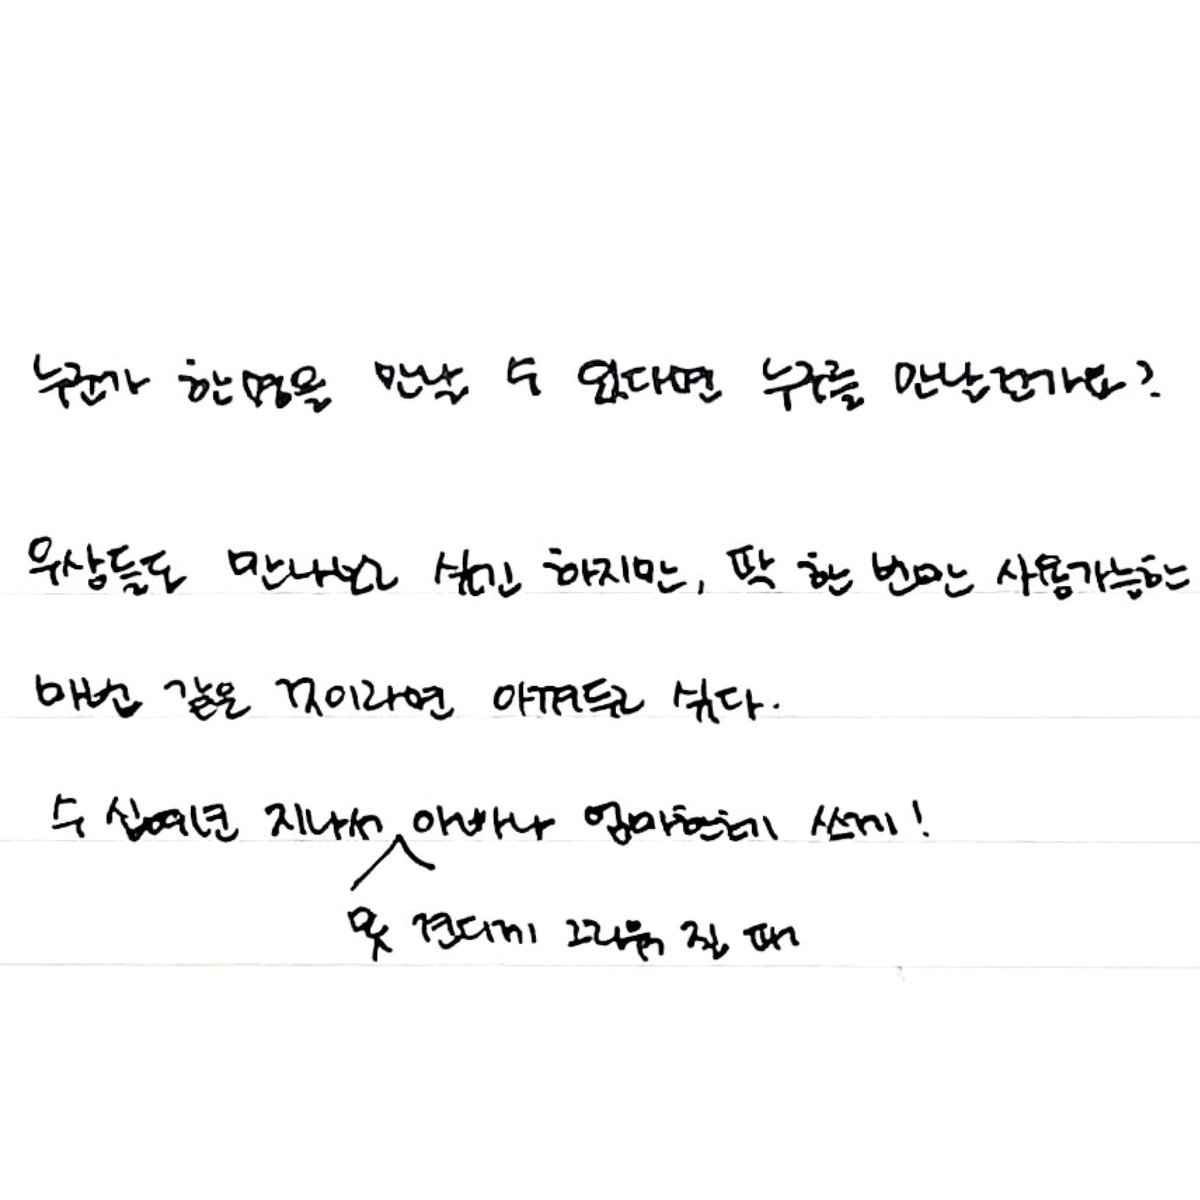 누군가 한명을 만날 수 있다면 누구를 만날건가요?
우상들도 만나보고 싶긴 하지만, 딱 한 번만 사용가능한
매번 같은 것이라면 아껴두고 싶다.
수 십여년 지나서 아빠나 엄마한테 쓰게!
못 견디게 그리워 질 때